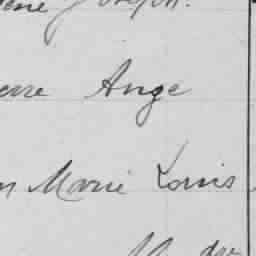 Joseph.
erre Ange
n Marie Louis